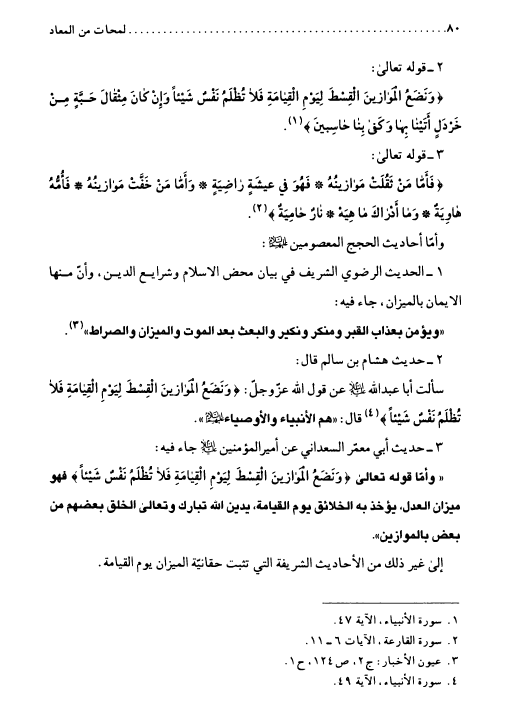 ٨٠ ........................................................ لمحات من المعاد
٢ ـ قوله تعالىٰ:
﴿ وَنَضَعُ الْمَوٰازينَ الْقِسْطَ لِيَوْمِ الْقِيٰامَةِ فَلاٰ تُظْلَمُ نَفْسٌ شَيْئاً وَإِنْ كٰانَ مِثْقٰالَ حَبَّةٍ مِـنْ
خَرْدَلٍ أَتَيْنٰا بِهٰا وَكَفىٰ بِنٰا حٰاسِبينَ ﴾(١).
٣ ـ قوله تعالىٰ:
﴿ فَأَمّٰا مَنْ ثَقُلَتْ مَوٰازينُهُ * فَهُوَ في عيشَةٍ رٰاضِيَةٍ * وَأَمّٰا مَنْ خَفَّتْ مَوٰازينُهُ * فَأُمُّهُ
هٰاوِيَةٌ * وَمٰا أَدْرٰاكَ مٰا هِيَهْ * نٰارٌ حٰامِيَةٌ ﴾(٢).
وأمّا أحاديث الحجج المعصومين عليهم السلام:
١ ـ الحديث الرضوي الشريف في بيان محض الاسلام وشرايع الديـن، وأنّ مـنها
الايمان بالميزان، جاء فيه:
«ويؤمن بعذاب القبر ومنكر ونكير والبعث بعد الموت والميزان والصراط»(٣).
٢ ـ حديث هشام بن سالم قال:
سألت أبا عبدالله عليه السلام عن قول الله عزّوجلّ: ﴿ وَنَضَعُ الْمَوٰازينَ الْقِسْطَ لِيَوْمِ الْقِيٰامَةِ فَلاٰ
تُظْلَمُ نَفْسٌ شَيْئاً ﴾(٤) قال: «هم الأنبياء والأوصياء عليهم السلام».
٣ ـ حديث أبي معمّر السعداني عن أميرالمؤمنين عليه السلام جاء فيه:
« وأمّا قوله تعالىٰ ﴿ وَنَضَعُ الْمَوٰازينَ الْقِسْطَ لِيَوْمِ الْقِيٰامَةِ فَلاٰ تُظْلَمُ نَفْسٌ شَيْئاً ﴾ فهو
ميزان العدل، يؤخذ به الخلائق يوم القيامة، يدين الله تبارك وتعالىٰ الخلق بعضهم من
بعض بالموازين».
إلىٰ غير ذلك من الأحاديث الشريفة التي تثبت حقانيّة الميزان يوم القيامة.
١. سورة الأنبياء، الآية ٤٧.
٢. سورة القارعة، الآيات ٦ ـ ١١.
٣. عيون الأخبار: ج٢، ص١٢٤، ح١.
٤. سورة الأنبياء، الآية ٤٩.